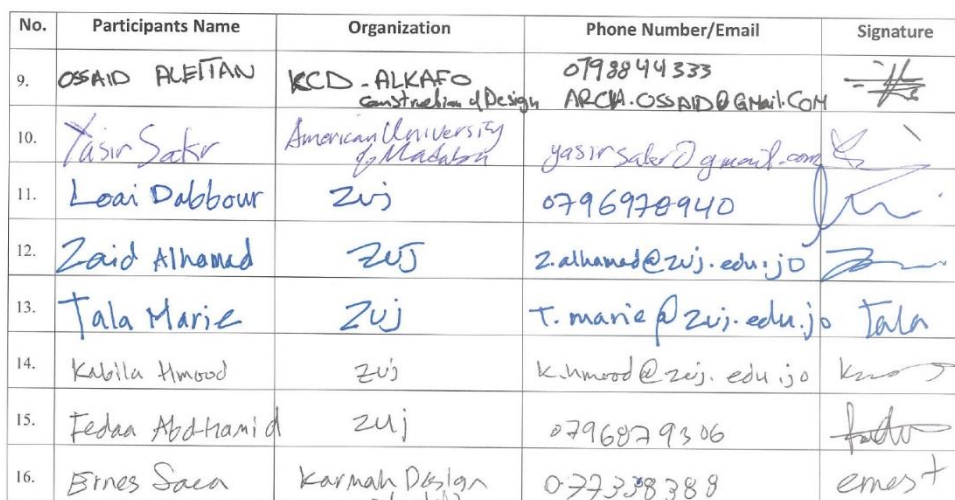 No. Participants Name Organization Phone Number/Email Signature
9. OSSAID ALEITAN KCD - ALKAFO 0798844333
Construction & Design ARCH.OSSAID@GMail.COM
10. Yasir Sakr American University yasirsakr@gmail.com
of Madaba
11. Loai Dabbour ZUJ 0796970940
12. Zaid Alhamad ZUJ z.alhamad@zuj.edu.jo
13. Tala Marie ZUJ T.marie@zuj.edu.jo Tala
14. Kabila Hmood ZUJ k.hmood@zuj.edu.jo
15. Fedaa Abdhamid ZUJ 0796879306
16. Ernes Saea Karmah Design 077338388 ernest